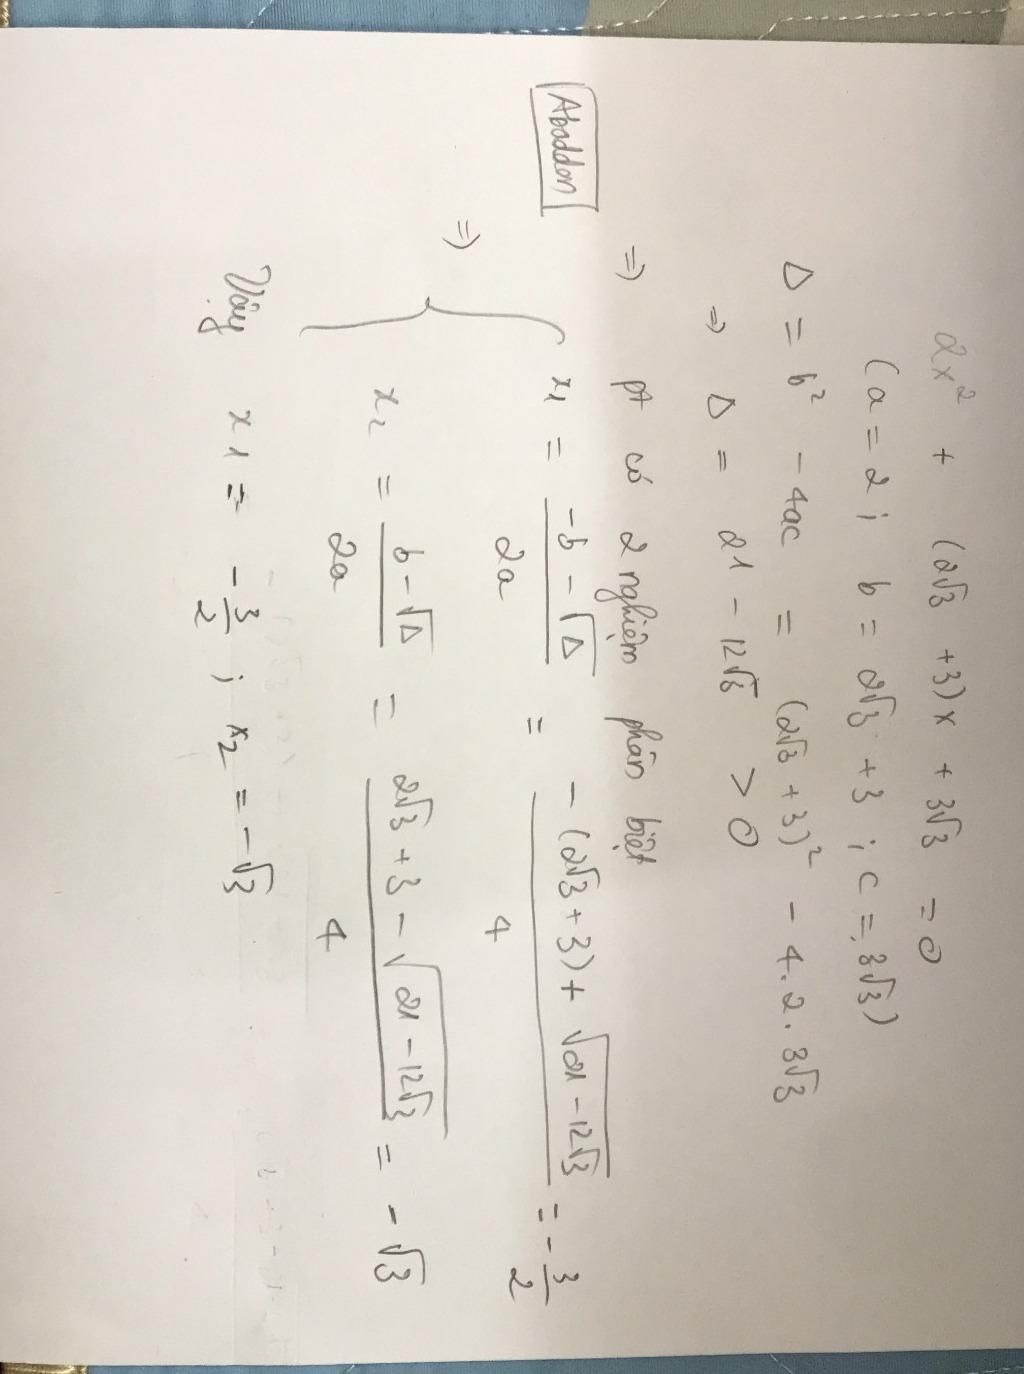 2x² + (2√3 + 3)x + 3√3 = 0
(a = 2 ; b = 2√3 + 3 ; c = 3√3)
Δ = b² - 4ac = (2√3 + 3)² - 4.2.3√3
⇒ Δ = 21 - 12√3 > 0
⇒ pt có 2 nghiệm phân biệt
Abaddon
⇒ { x₁ = (-b - √Δ)/2a = (-(2√3 + 3) + √(21 - 12√3))/4 = -3/2
x₂ = (b - √Δ)/2a = (2√3 + 3 - √(21 - 12√3))/4 = -√3
Vậy x₁ = -3/2 ; x₂ = -√3